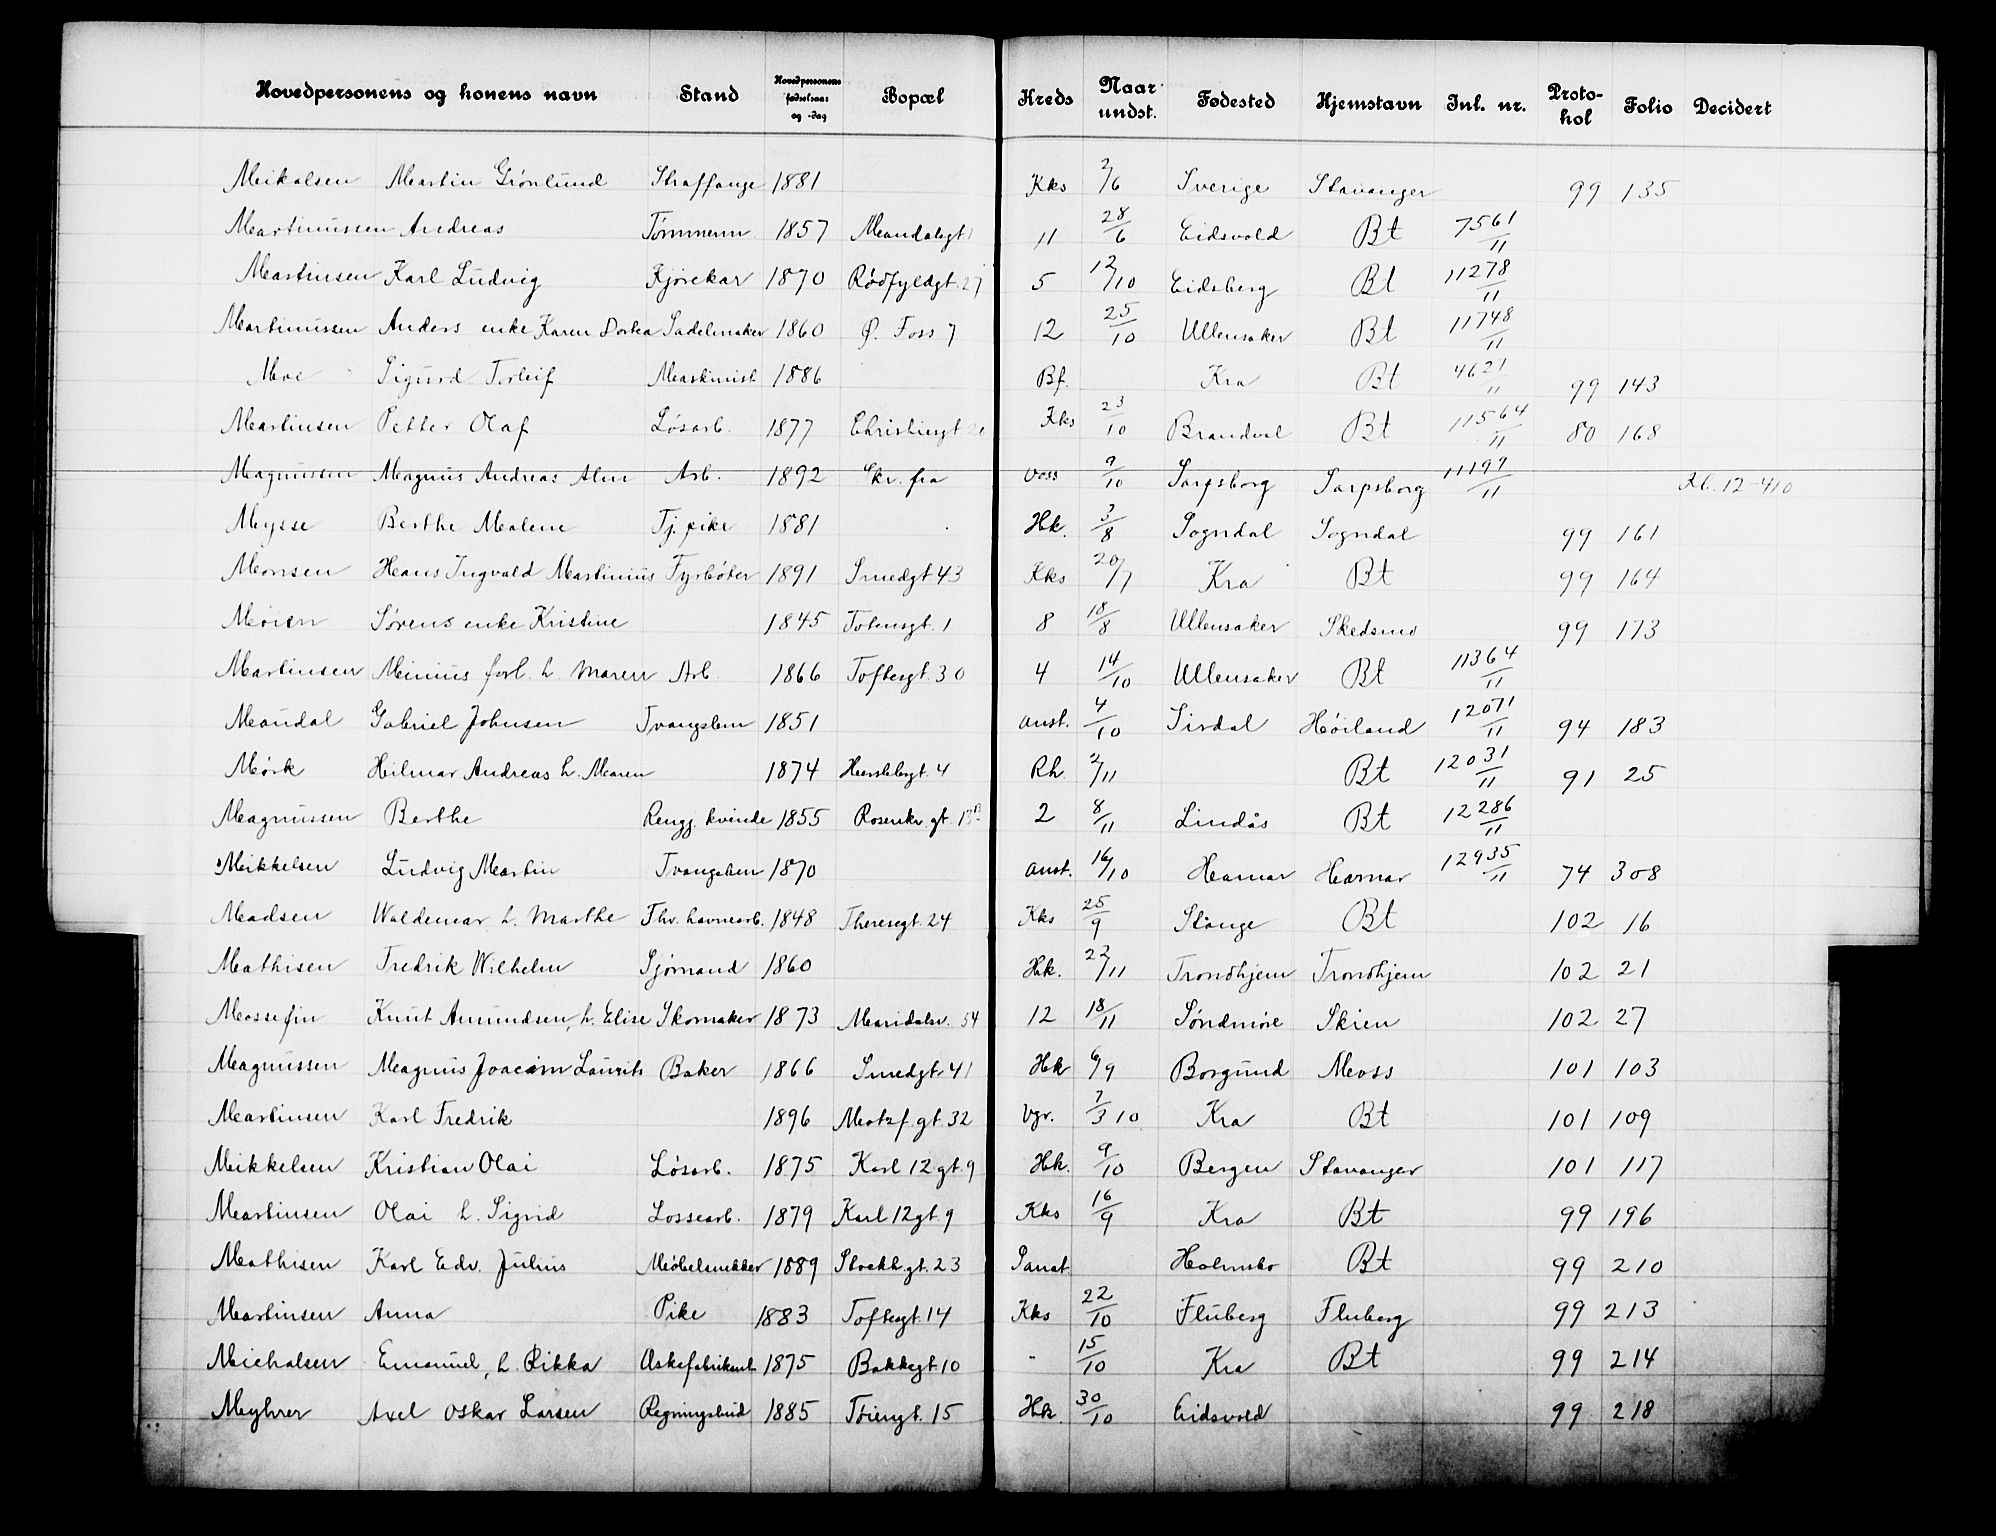 Hovedpersonens og konens navn Stand Hovedpersonens fødselsaar og -dag Bopæl Kreds Naar undst. Fødested Hjemstavn Inl. nr. Protokol Folio Decidert
Mikalsen Martin Grönlund Straffange 1881 Kks 2/6 Sverige Stavanger 99 135
Martinussen Andreas Tömmerm. 1857 Mandalsgt 11 28/6 Eidsvold Bt 7561/11
Martinsen Karl Ludvig Kjörekar 1870 Rødfyldgt. 27 5 12/10 Eidsberg Bt 11278/11
Martinussen Anders enke Karen Dortea Sadelmaker 1860 Ø. Foss 7 12 25/10 Ullensaker Bt 11748/11
Moe Sigurd Torleif Maskinist 1886 Bf. Kra Bt 4621/11 99 143
Martinsen Petter Olaf Løsarb. 1877 Christiesgt Kks 23/10 Brandval Bt 11564/11 80 168
Magnussen Magnus Andreas Alm Arb. 1892 Skr. fra Voss 9/10 Sarpsborg Sarpsborg 11197/11 Kl. 12-410
Mysse Berthe Malene Tj. pike 1881 Hk. 3/8 Sogndal Sogndal 99 161
Monsen Hans Ingvald Martinius Fyrböter 1891 Smedgt 43 Kks 20/7 Kra Bt 99 164
Möien Sörens enke Kristine 1845 Totensgt. 1 8 18/8 Ullensaker Skedsmo 99 173
Martinsen Minius forl. h. Maren Arb. 1866 Toftesgt. 30 4 14/10 Ullensaker Bt 11364/11
Maudal Gabriel Johnsen Tvangslem 1851 Anst. 4/10 Sirdal Höiland 12071/11 94 183
Mörk Hilmar Andreas h. Maren 1874 Herslebsgt. 4 Rh. 2/11 Bt 12031/11 91 25
Magnussen Berthe Rengj. kvinde 1855 Rosenkr. gt. 13 B 2 8/11 Lindås Bt 12286/11
Mikkelsen Ludvig Martin Tvangslem 1870 Anst. 16/10 Hamar Hamar 12935/11 74 308
Madsen Waldemar h. Marthe Fhv. havnearb. 1848 Theresegt. 24 Kks 25/9 Stange Bt 102 16
Mathisen Fredrik Wilhelm Sjömand 1860 Hk. 22/11 Trondhjem Trondhjem 102 21
Mossefin Knut Amundsen, h. Elise Skomaker 1873 Maridalsv. 54 12 18/11 Söndmöre Skien 102 27
Magnussen Magnus Joacim Laurits Baker 1866 Smedgt. 41 Hk 6/9 Borgund Moss 101 103
Martinsen Karl Fredrik 1896 Motzf. gt. 32 Vgr. 7/3 10 Kra Bt 101 109
Mikkelsen Kristian Olai Løsarb. 1875 Karl 12 gt. 9 Hk. 9/10 Bergen Stavanger 101 117
Martinsen Olai h. Sigrid Lossearb. 1879 Karl 12 gt. 9 Kks 16/9 Kra Bt 99 196
Mathisen Karl Edv. Julius Möbelsnekker 1889 Stockh. gt. 23 Sanat. Holmsbo Bt 99 210
Martinsen Anna Pike 1883 Toftesgt. 14 Kks 22/10 Fluberg Fluberg 99 213
Michalsen Emanuel, h. Rikka Askefabrikant 1875 Bakkegt. 10 - 15/10 Kra Bt 99 214
Myhrer Axel Oskar Larsen Regningsbud 1885 Töiengt. 15 Hk 30/10 Eidsvold 99 218